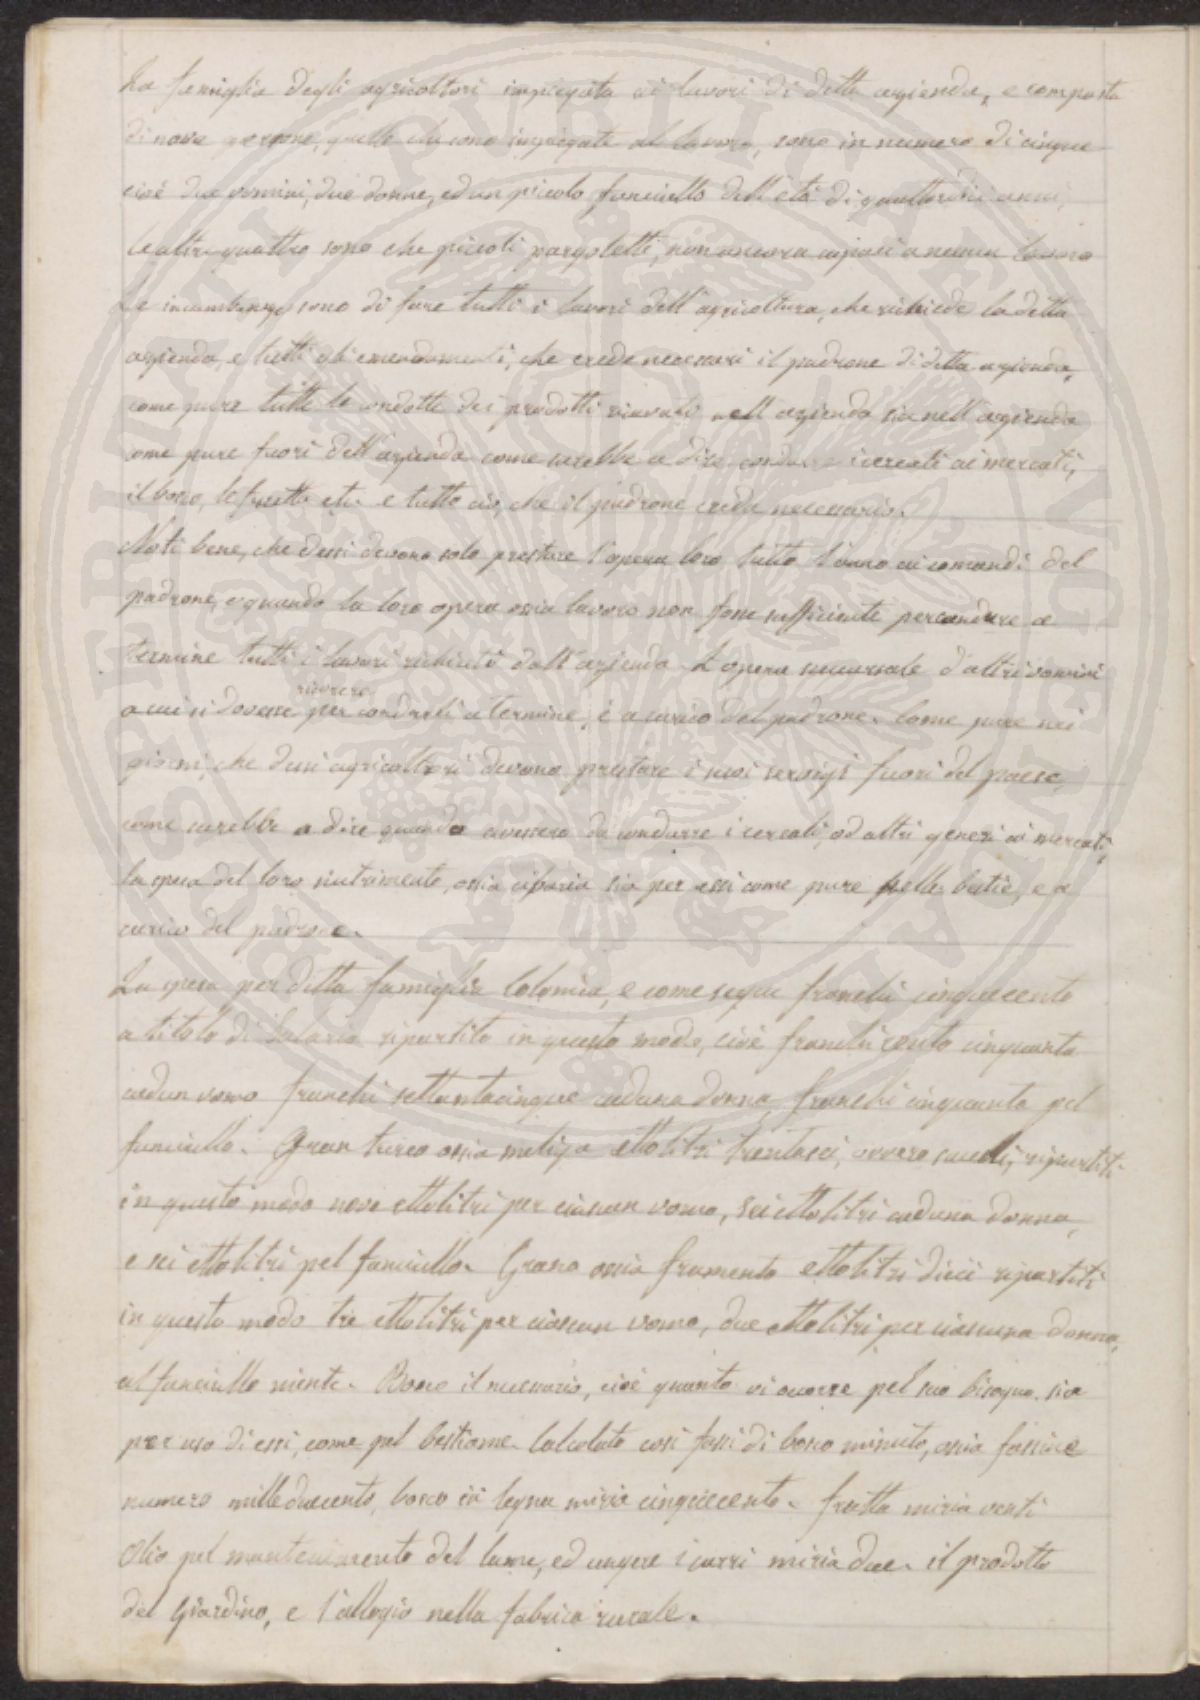 La famiglia degli agricoltori impiegata ai lavori di detta azienda, e composta
di nove persone, quelle che sono impiegate al lavoro, sono in numero di cinque
cioè due uomini, due donne, ed un piccolo fanciullo dell'età di quattordici anni,
le altre quattro sono che piccoli pargoletti, non ancora capaci a nessun lavoro
Le incumbenze sono di fare tutti i lavori dell'agricoltura, che richiede la detta
azienda, e tutti gli emendamenti, che crede necessari il padrone di detta azienda,
come pure tutte le condotte dei prodotti ricavati nell azienda sia nell'azienda
come pure fuori dell'azienda come sarebbe a dire condurre i cereali ai mercati,
il bosco, le frutta etc. e tutto ciò, che il padrone crede necessario.
Noti bene, che dessi devono solo prestare l'opera loro tutto l'anno ai comandi del
padrone, e quando la loro opera ossia lavoro non fosse sufficiente per condurre a
termine tutti i lavori richiesti dall'azienda. L'opera succursale d'altri uomini
ricorrere
a cui si dovesse per condurli a termine, è a carico del padrone. Come pure nei
giorni, che dessi agricoltori devono prestare i suoi servigi fuori del paese,
come sarebbe a dire quando avessero da condurre i cereali, od altri generi ai mercati,
la spesa del loro nutrimento, ossia cibaria sia per essi come pure pelle bestie, e a
carico del padrone.
La spesa per detta famiglia Colonica, e come segue franchi cinquecento
a titolo di Salario ripartito in questo modo, cioè franchi cento cinquanta
cadun uomo franchi settantacinque caduna donna, franchi cinquanta pel
fanciullo. Gran turco ossia meliga ettolitri trentasei, ovvero sacchi, ripartiti
in questo modo nove ettolitri per ciascun uomo, sei ettolitri caduna donna,
e sei ettolitri pel fanciullo. Grano ossia frumento ettolitri dieci ripartiti
in questo modo tre ettolitri per ciascun uomo, due ettolitri per ciascuna donna,
al fanciullo niente. Bosco il necessario, cioè quanto vi occorre pel suo bisogno. sia
per uso di essi, come pel bestiame. Calcolato così fassi di bosco minuto, ossia fassine
numero mille duecento, bosco in legna miria cinquecento. frutta miria venti
Olio pel mantenimento del lume, ed ungere i carri miria due. il prodotto
del Giardino, e l'allogio nella fabrica rurale.